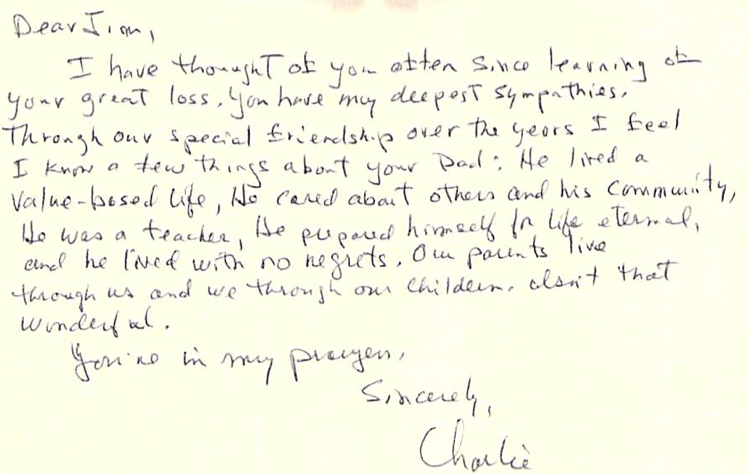 Dear Jim,
I have thought of you often since learning of
your great loss. You have my deepest sympathies.
Through our special friendship over the years I feel
I know a few things about your Dad: He lived a
value-based life, He cared about others and his community,
He was a teacher, He prepared himself for life eternal,
and he lived with no regrets. Our parents live
through us and we through our children. Isn't that
wonderful.
You're in my prayers.
Sincerely,
Charlie